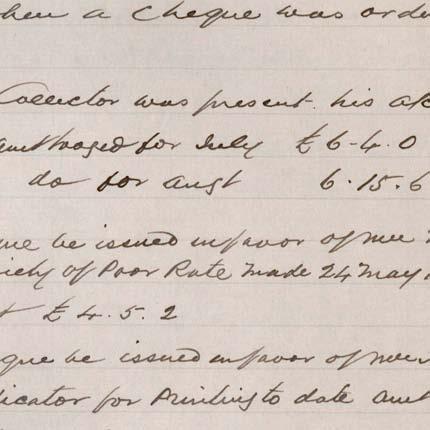 hen a Cheque was orde
Collector was present. his
for July £ 6-4.0
do for augt 6.15.6
ue be issued in favor of
iety of Poor Rate made 24 May
£ 4.5.2
que be issued in favor of
icator for Printing to date